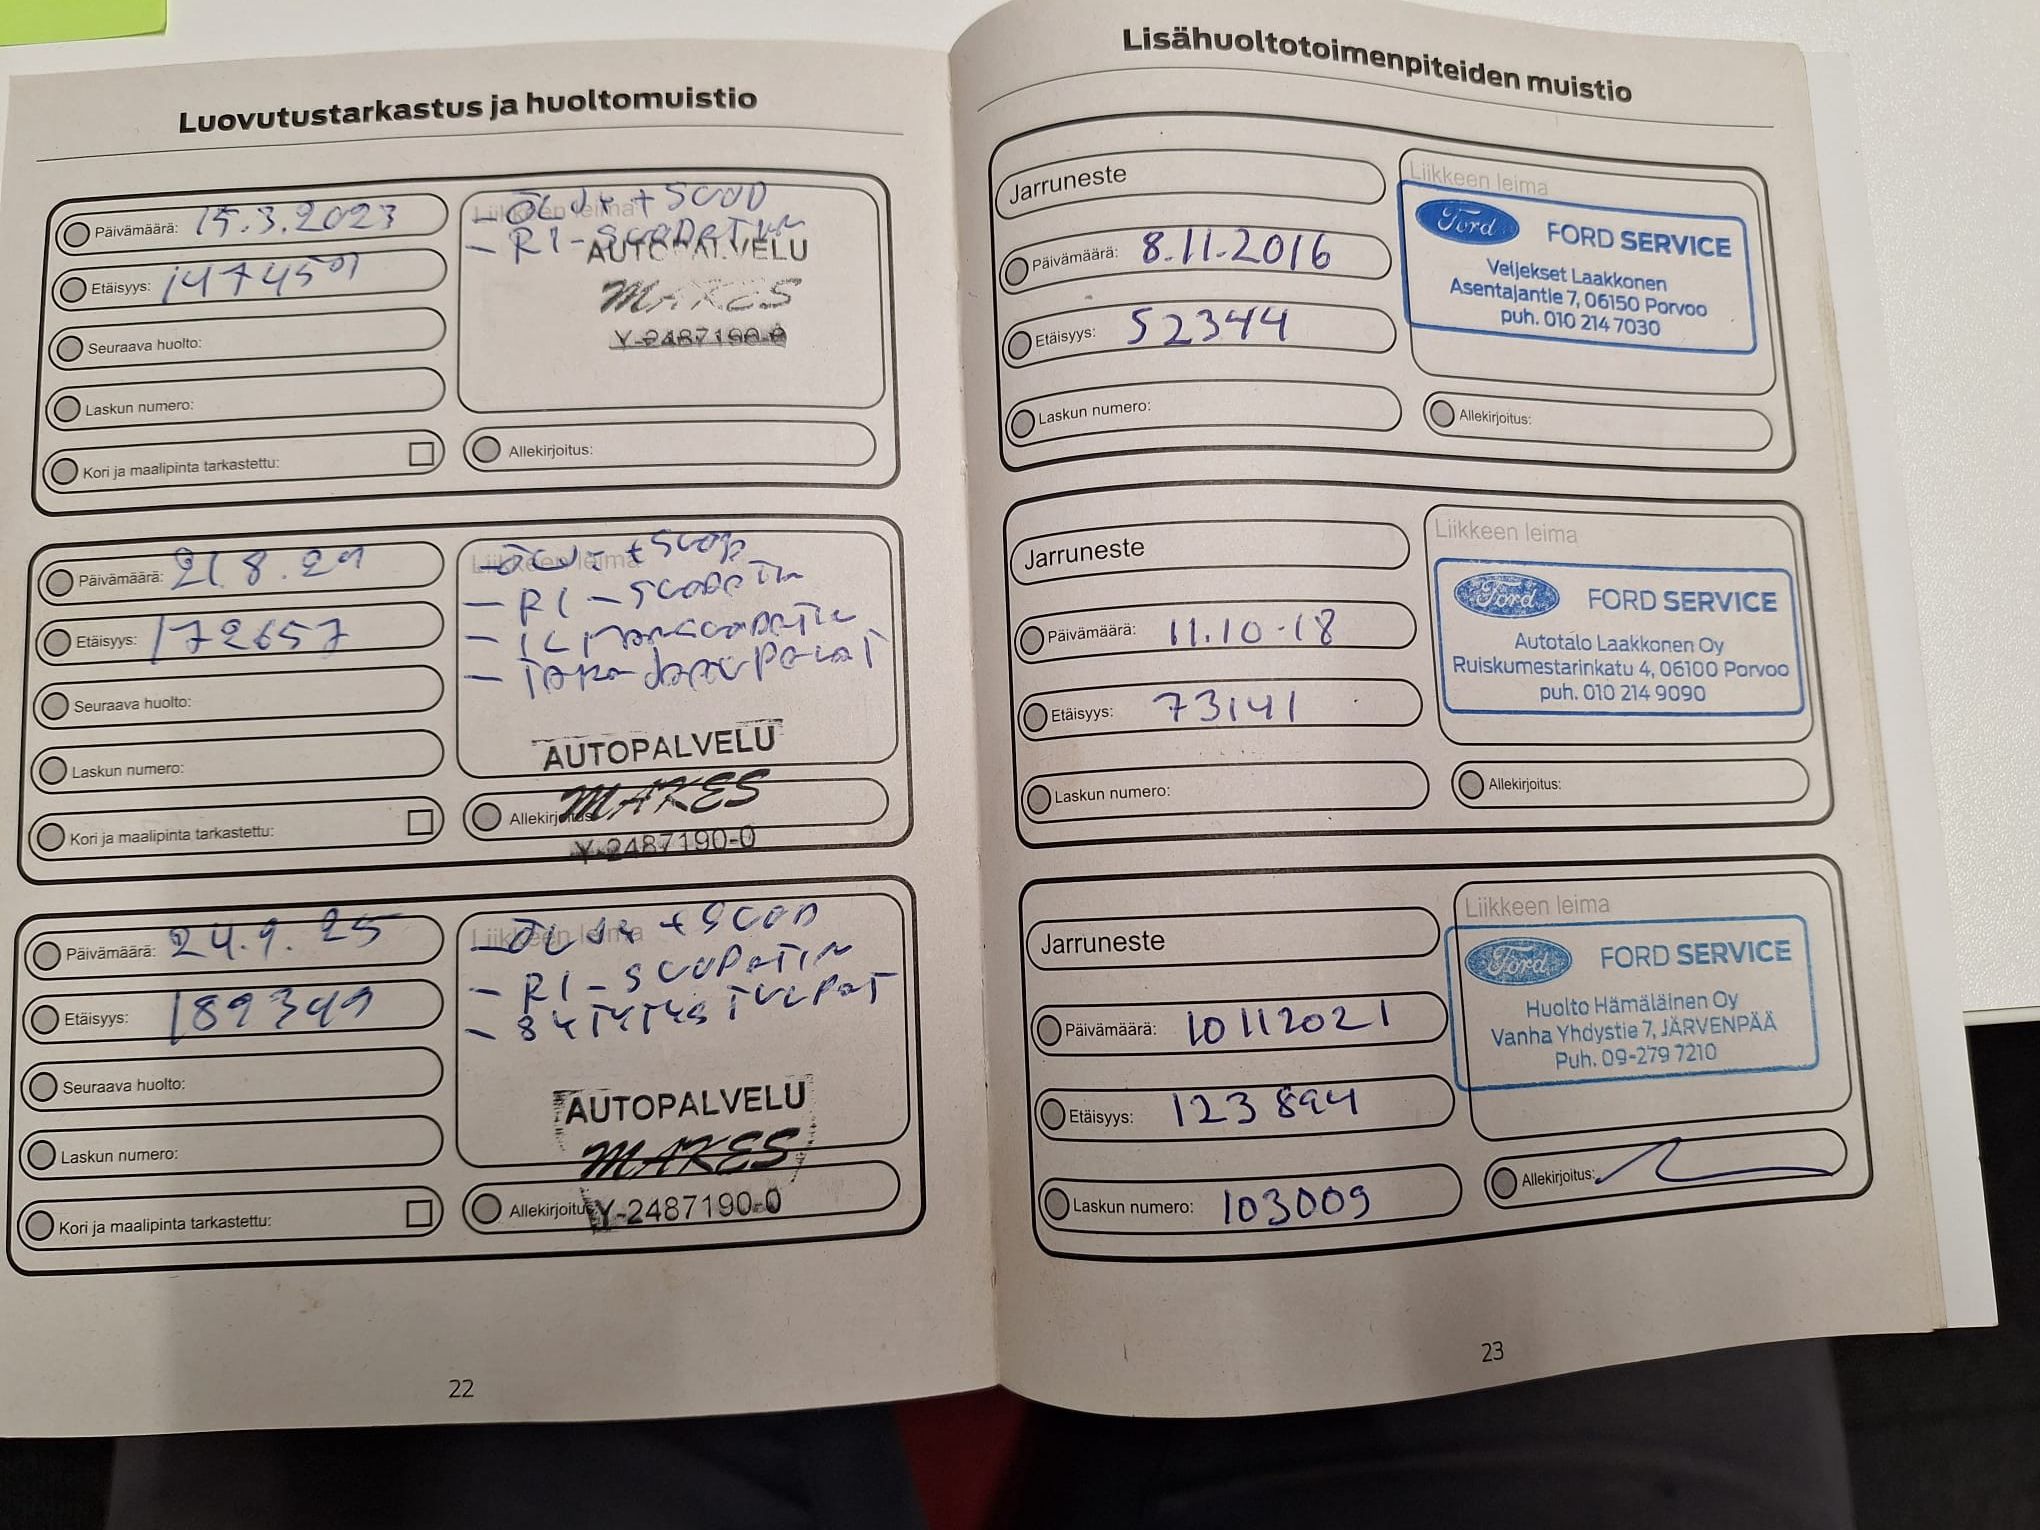 Luovutustarkastus ja huoltomuistio
Päivämäärä: 15.3.2023
Etäisyys:
Seuraava huolto:
Laskun numero:
Kori ja maalipinta tarkastettu:
Liikkeen leima
- ÖLJY + SUOD
- RI-SUODATIN
AUTOPALVELU
MAKES
Y-2487190-0
Allekirjoitus:
Päivämäärä: 21.8.24
Etäisyys: 172657
Seuraava huolto:
Laskun numero:
Kori ja maalipinta tarkastettu:
Liikkeen leima
- ÖLJY + SUOD
- RI-SUODATIN
- ILMANSUODATIN
- TAKA JARRUPALAT
AUTOPALVELU
MAKES
Y-2487190-0
Allekirjoitus:
Päivämäärä: 24.9.25
Etäisyys: 189349
Seuraava huolto:
Laskun numero:
Kori ja maalipinta tarkastettu:
Liikkeen leima
- ÖLJY + SUOD
- RI-SUODATIN
- SYTYTYSTULPAT
AUTOPALVELU
MAKES
Y-2487190-0
Allekirjoitus:
22
Lisähuoltotoimenpiteiden muistio
Jarruneste
Päivämäärä: 8.11.2016
Etäisyys: 52344
Laskun numero:
Liikkeen leima
Ford FORD SERVICE
Veljekset Laakkonen
Asentajantie 7, 06150 Porvoo
puh. 010 214 7030
Allekirjoitus:
Jarruneste
Päivämäärä: 11.10-18
Etäisyys: 73141
Laskun numero:
Liikkeen leima
Ford FORD SERVICE
Autotalo Laakkonen Oy
Ruiskumestarinkatu 4, 06100 Porvoo
puh. 010 214 9090
Allekirjoitus:
Jarruneste
Päivämäärä: 10112021
Etäisyys: 123894
Laskun numero: 103009
Liikkeen leima
Ford FORD SERVICE
Huolto Hämäläinen Oy
Vanha Yhdystie 7, JÄRVENPÄÄ
Puh. 09-279 7210
Allekirjoitus:
23